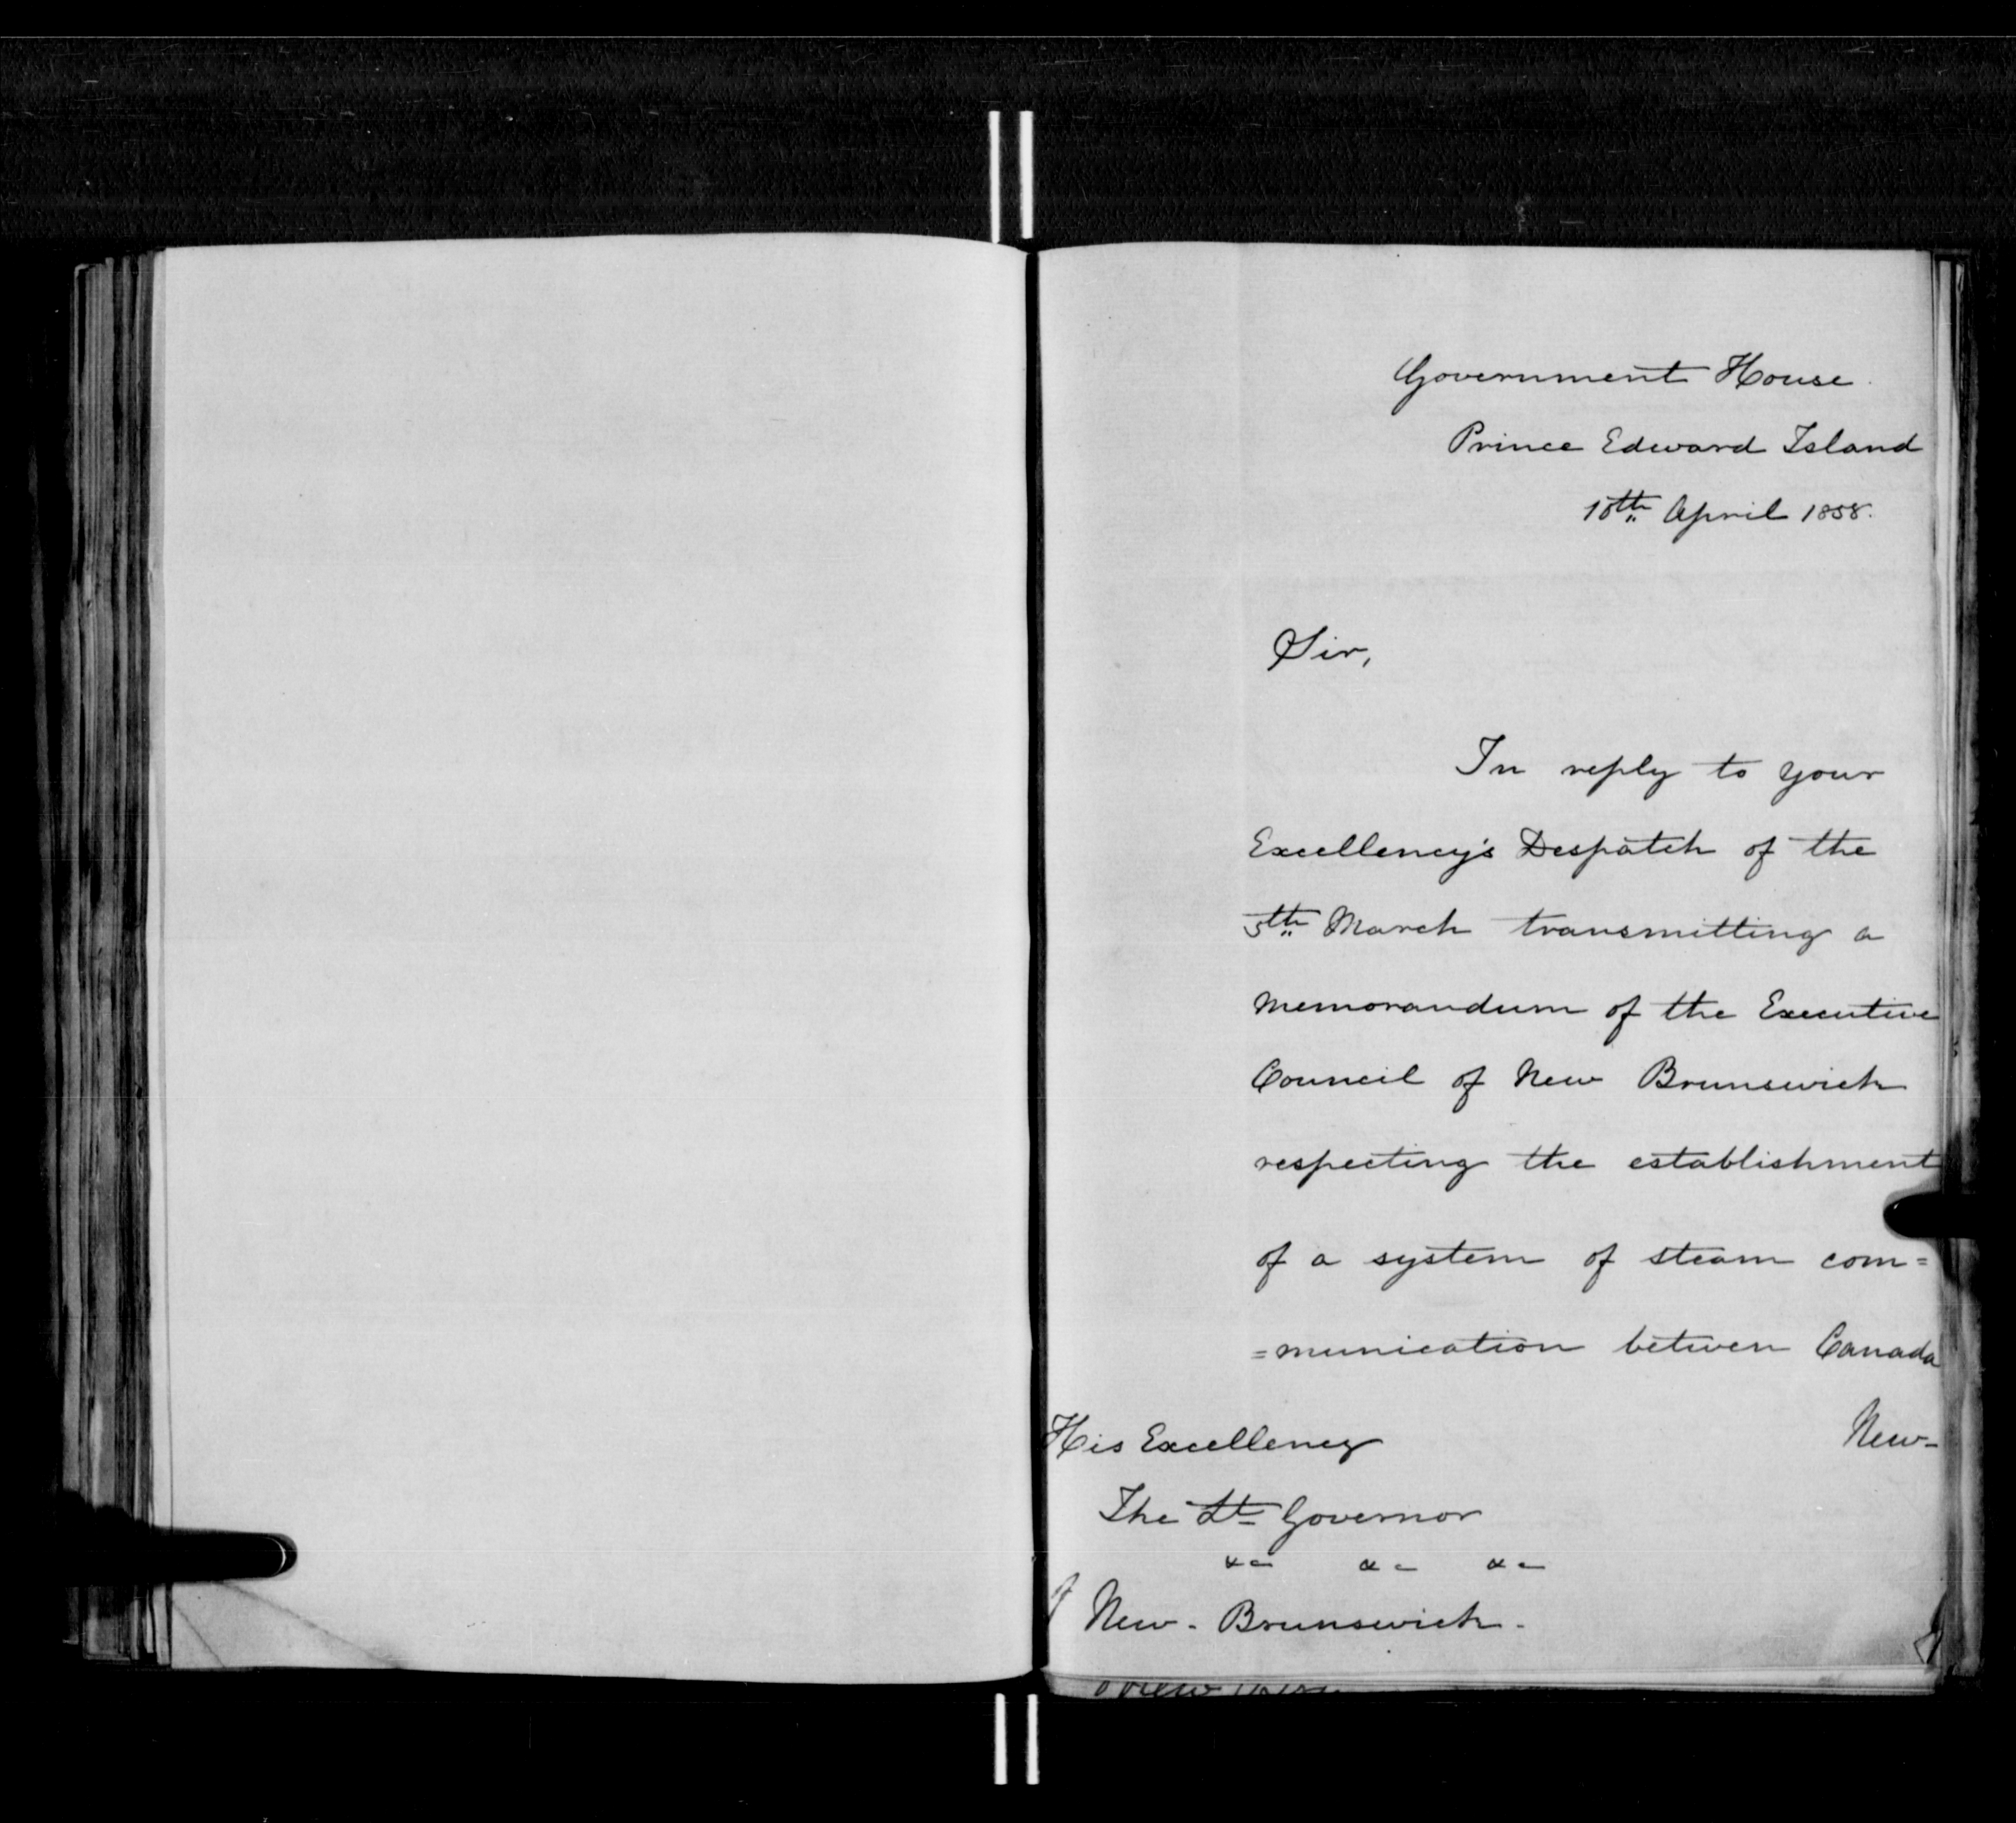 Government House.
Prince Edward Island
15th April 1858.
Sir,
In reply to your
Excellency's Despatch of the
5th March transmitting a
Memorandum of the Executive
Council of New Brunswick
respecting the establishment
of a system of steam com=
=munication between Canada
New-
His Excellency
The Lt Governor
&c &c &c
of New-Brunswick-